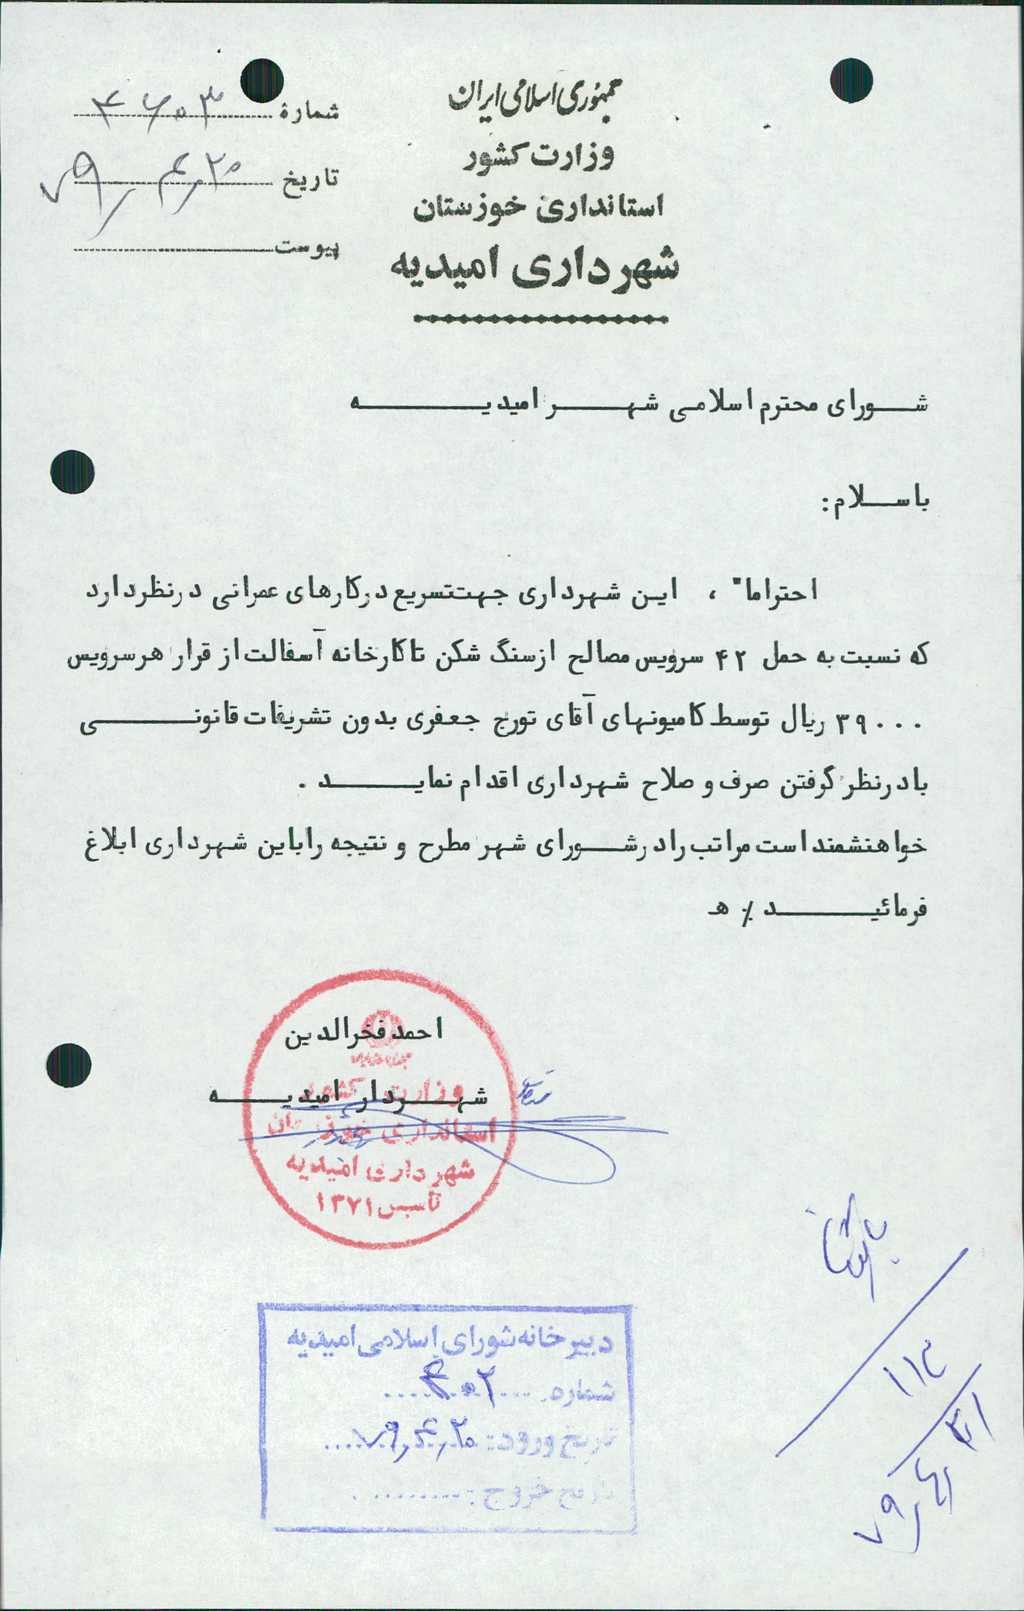 جمهوری اسلامی ایران
وزارت کشور
استانداری خوزستان
شهرداری امیدیه
شمارهٔ ۴۶۰۳
تاریخ ۷۹/۴/۲۰
پیوست
شورای محترم اسلامی شهر امیدیه
باسلام:
احتراما" ، این شهرداری جهت تسریع درکارهای عمرانی درنظردارد
که نسبت به حمل ۴۲ سرویس مصالح ازسنگ شکن تاکارخانه آسفالت از قرار هرسرویس
۳۹۰۰۰ ریال توسط کامیونهای آقای تورج جعفری بدون تشریفات قانونی
بادرنظر گرفتن صرف و صلاح شهرداری اقدام نماید .
خواهشمنداست مراتب رادرشورای شهر مطرح و نتیجه راباین شهرداری ابلاغ
فرمائید ./ ه
احمد فخرالدین
شهردار امیدیه
وزارت کشور
استانداری خوزستان
شهرداری امیدیه
تاسیس ۱۳۷۱
دبیرخانه شورای اسلامی امیدیه
شماره: ۴۰۲
تاریخ ورود: ۷۹/۴/۲۰
تاریخ خروج: